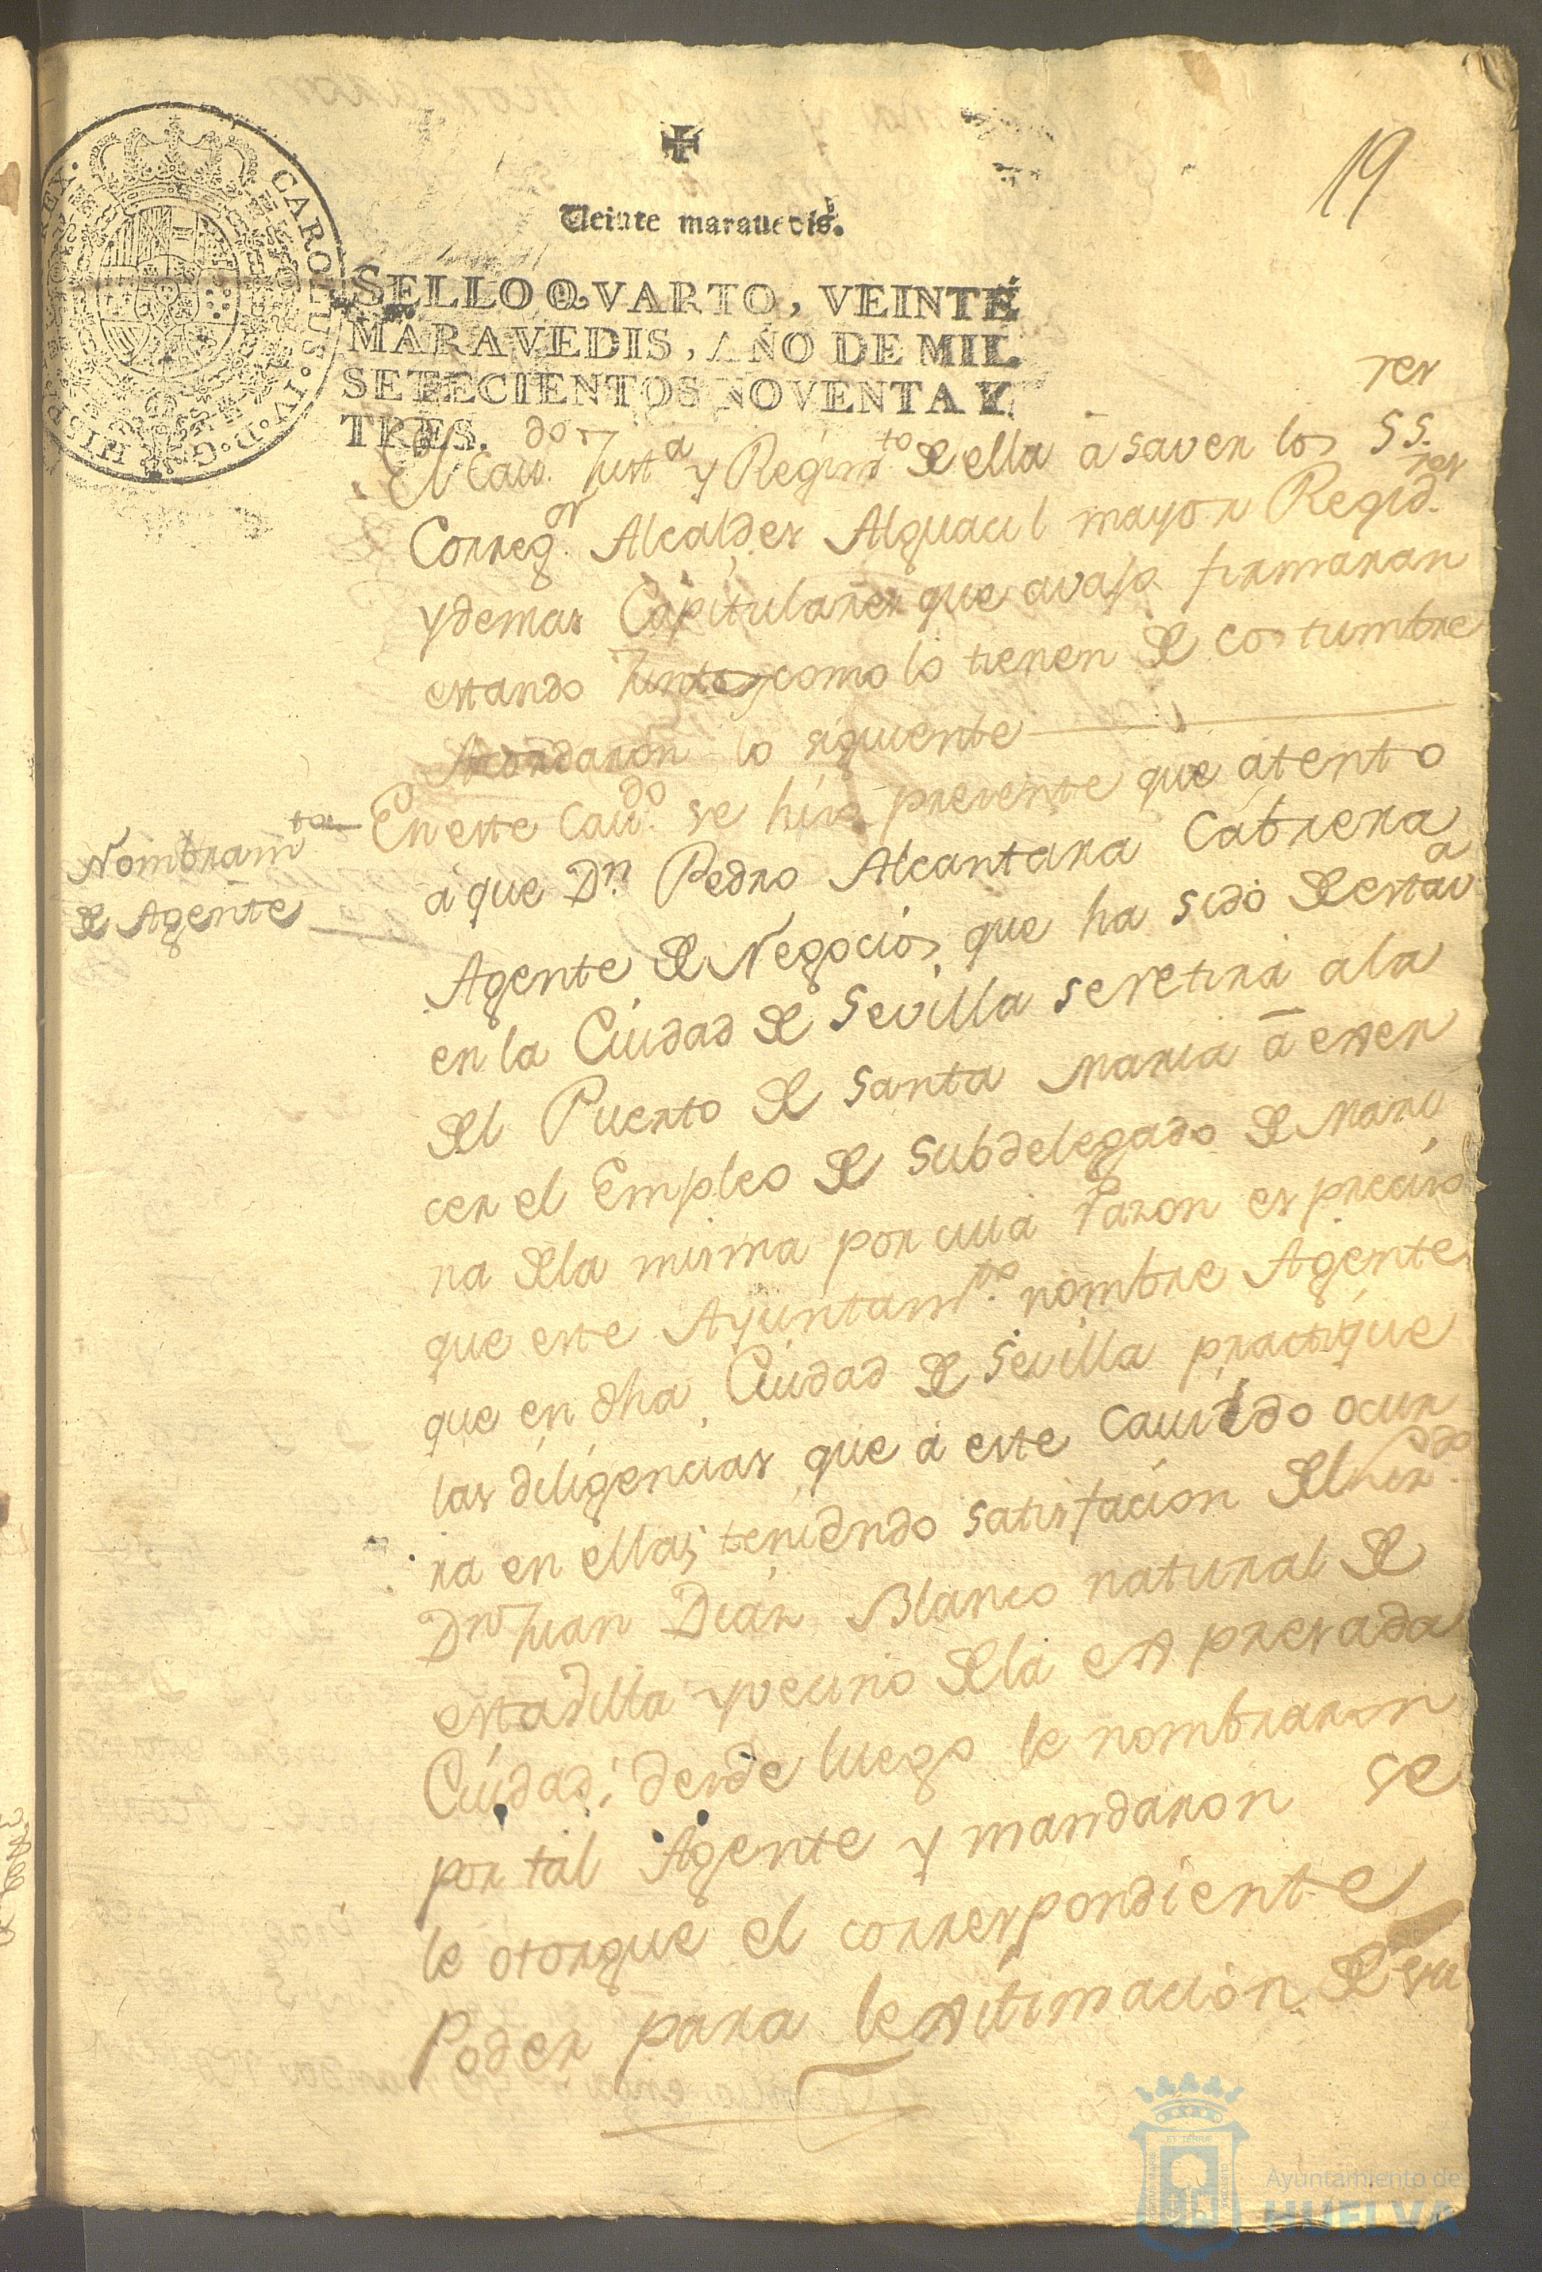 19
Veinte maravedis.
SELLO QVARTO, VEINTE
MARAVEDIS, AÑO DE MIL
SETECIENTOS NOVENTA Y
TRES.
CAROLUS IV D G HISP REX
El Cav.do Just.a y Regim.to de ella â saver los SS.res
Correg.or Alcaldes Alguacil mayor Regid.res
y demas Capitulares que avajo firmaran
estando Juntos como lo tienen de costumbre
Acordaron lo siguiente
Nombram.to
de Agente
En este Cav.do se hiso presente que atento
a que Dn. Pedro Alcantara Cabrera
Agente de Negocios que ha sido de esta v.a
en la Ciudad de Sevilla se retira a la
del Puerto de Santa Maria â exer
cer el Empleo de Subdelegado de Mari
na de la misma por cuia razon es preciso
que este Ayuntam.to nombre Agente
que en dha Ciudad de Sevilla practique
las diligencias que á este Cavildo ocur
ra en ellas teniendo satisfacion del
Dn Juan Diaz Blanco natural de
esta villa y vecino de la expresada
Ciudad; desde luego le nombraron
por tal Agente y mandaron se
le otorgue el correspondiente
Poder para lexitimacion de su
Ayuntamiento de
HUELVA